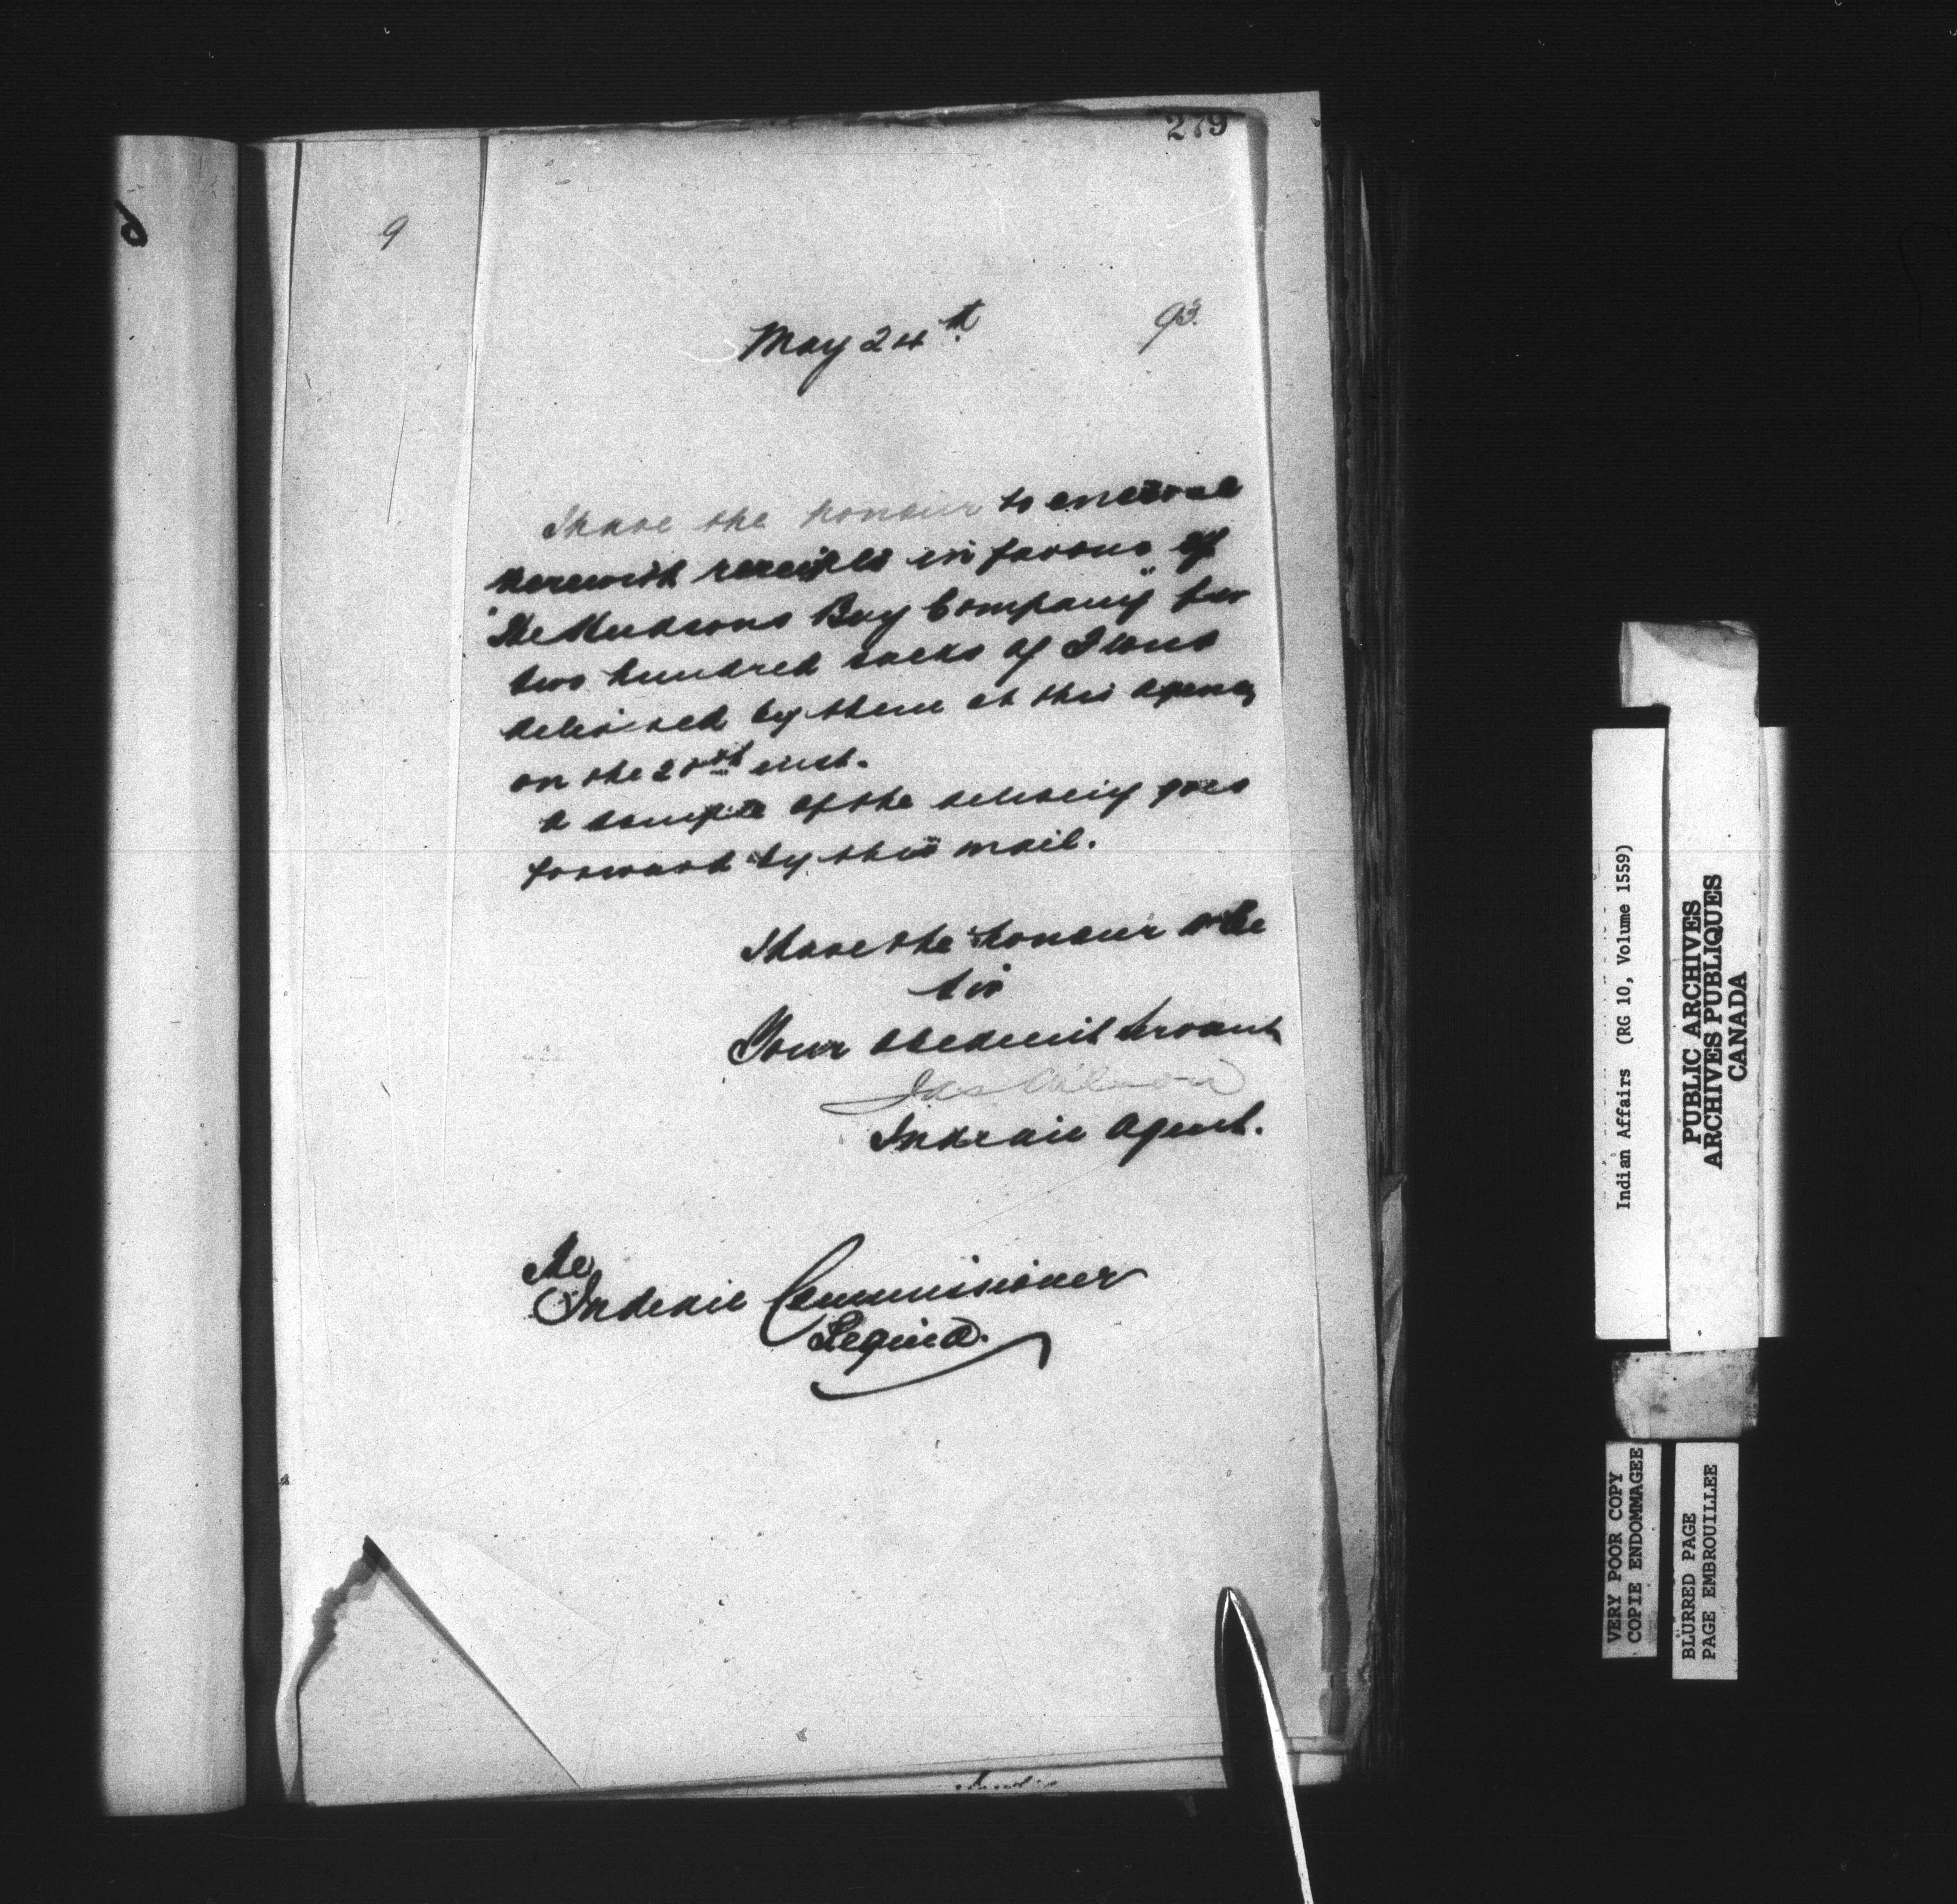 279
9
May 24th. 93.
I have the honour to enclose
herewith receipts in favour of
"The Hudsons Bay Company" for
two hundred sacks of Flour
delivered by them at this agency
on the inst.
A sample of the delivery goes
forward by this mail.
I have the honour to be
Sir
Your obedient Servant
Jas Wilson
Indian Agent.
The
Indian Commissioner
Regina.
Indian Affairs (RG 10, Volume 1559)
PUBLIC ARCHIVES
ARCHIVES PUBLIQUES
CANADA
VERY POOR COPY
COPIE ENDOMMAGEE
BLURRED PAGE
PAGE EMBROUILLEE